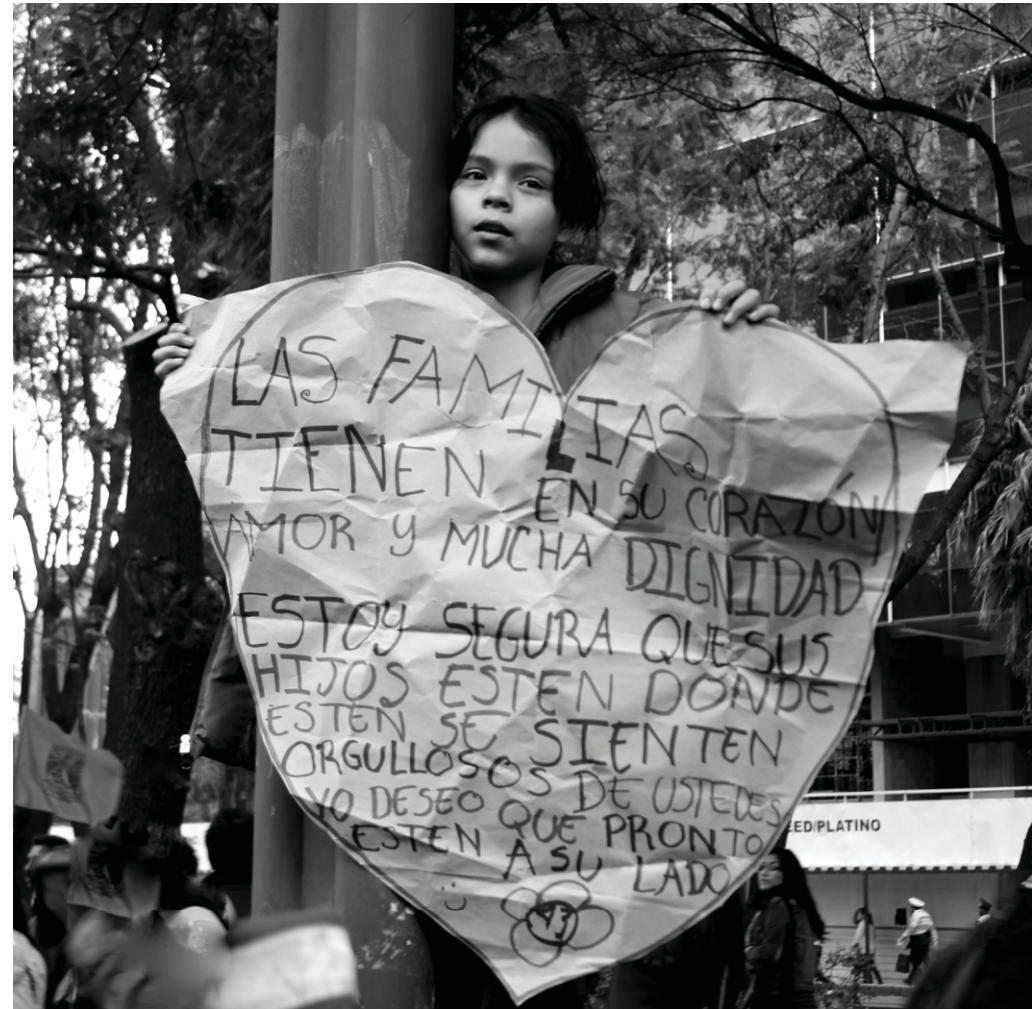 LAS FAMILIAS
TIENEN EN SU CORAZÓN
AMOR Y MUCHA DIGNIDAD
ESTOY SEGURA QUE SUS
HIJOS ESTEN DONDE
ESTEN SE SIENTEN
ORGULLOSOS DE USTEDES
YO DESEO QUE PRONTO
ESTEN A SU LADO
EED/PLATINO